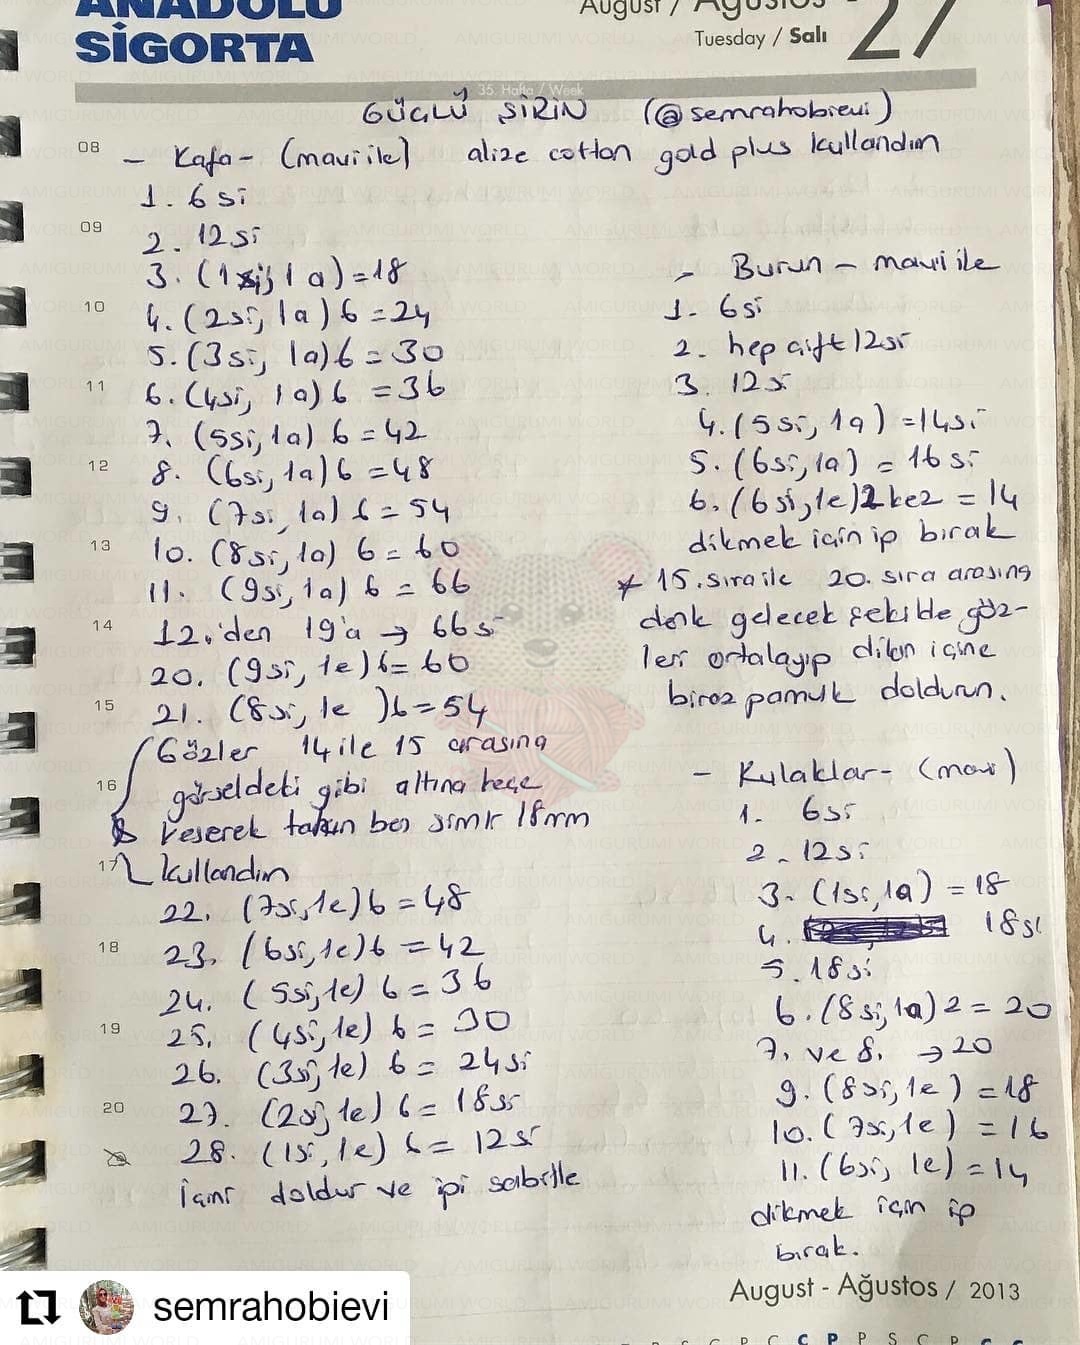 ANADOLU
SİGORTA
August / Ağustos 27
Tuesday / Salı
35. Hafta / Week
GÜÇLÜ ŞİRİN (@semrahobievi)
08 - Kafa - (mavi ile) alize cotton gold plus kullandım
1. 6 si
09
2. 12 si
3. (1 si, 1 a) = 18
10
4. (2si, 1a) 6 = 24
5. (3si, 1a) 6 = 30
11
6. (4si, 1a) 6 = 36
7. (5si, 1a) 6 = 42
12
8. (6si, 1a) 6 = 48
9. (7si, 1a) 6 = 54
13
10. (8si, 1a) 6 = 60
11. (9si, 1a) 6 = 66
14
12.'den 19'a → 66si
20. (9si, 1e) 6 = 60
15
21. (8si, 1e ) 6 = 54
Gözler 14 ile 15 arasına
16
görseldeki gibi altına keçe
keserek takın ben simli 18mm
17
kullandım
22. (7si, 1e) 6 = 48
18
23. (6si, 1e) 6 = 42
24. (5si, 1e) 6 = 36
19
25. (4si, 1e) 6 = 30
26. (3si, 1e) 6 = 24si
20
27. (2si, 1e) 6 = 18si
28. (1si, 1e) 6 = 12si
İçini doldur ve ipi sabitle
- Burun - mavi ile
1. 6si
2. hep çift 12si
3. 12si
4. (5si, 1a) = 14si
5. (6si, 1a) = 16 si
6. (6si, 1e) 2 kez = 14
dikmek için ip bırak
* 15. sıra ile 20. sıra arasına
denk gelecek şekilde göz-
leri ortalayıp dikin içine
biraz pamuk doldurun.
- Kulaklar - (mavi)
1. 6si
2. 12si
3. (1si, 1a) = 18
4. 18si
5. 18si
6. (8si, 1a) 2 = 20
7. ve 8. → 20
9. (8si, 1e) = 18
10. (7si, 1e) = 16
11. (6si, 1e) = 14
dikmek için ip
bırak.
August - Ağustos / 2013
semrahobievi
AMIGURUMI WORLD